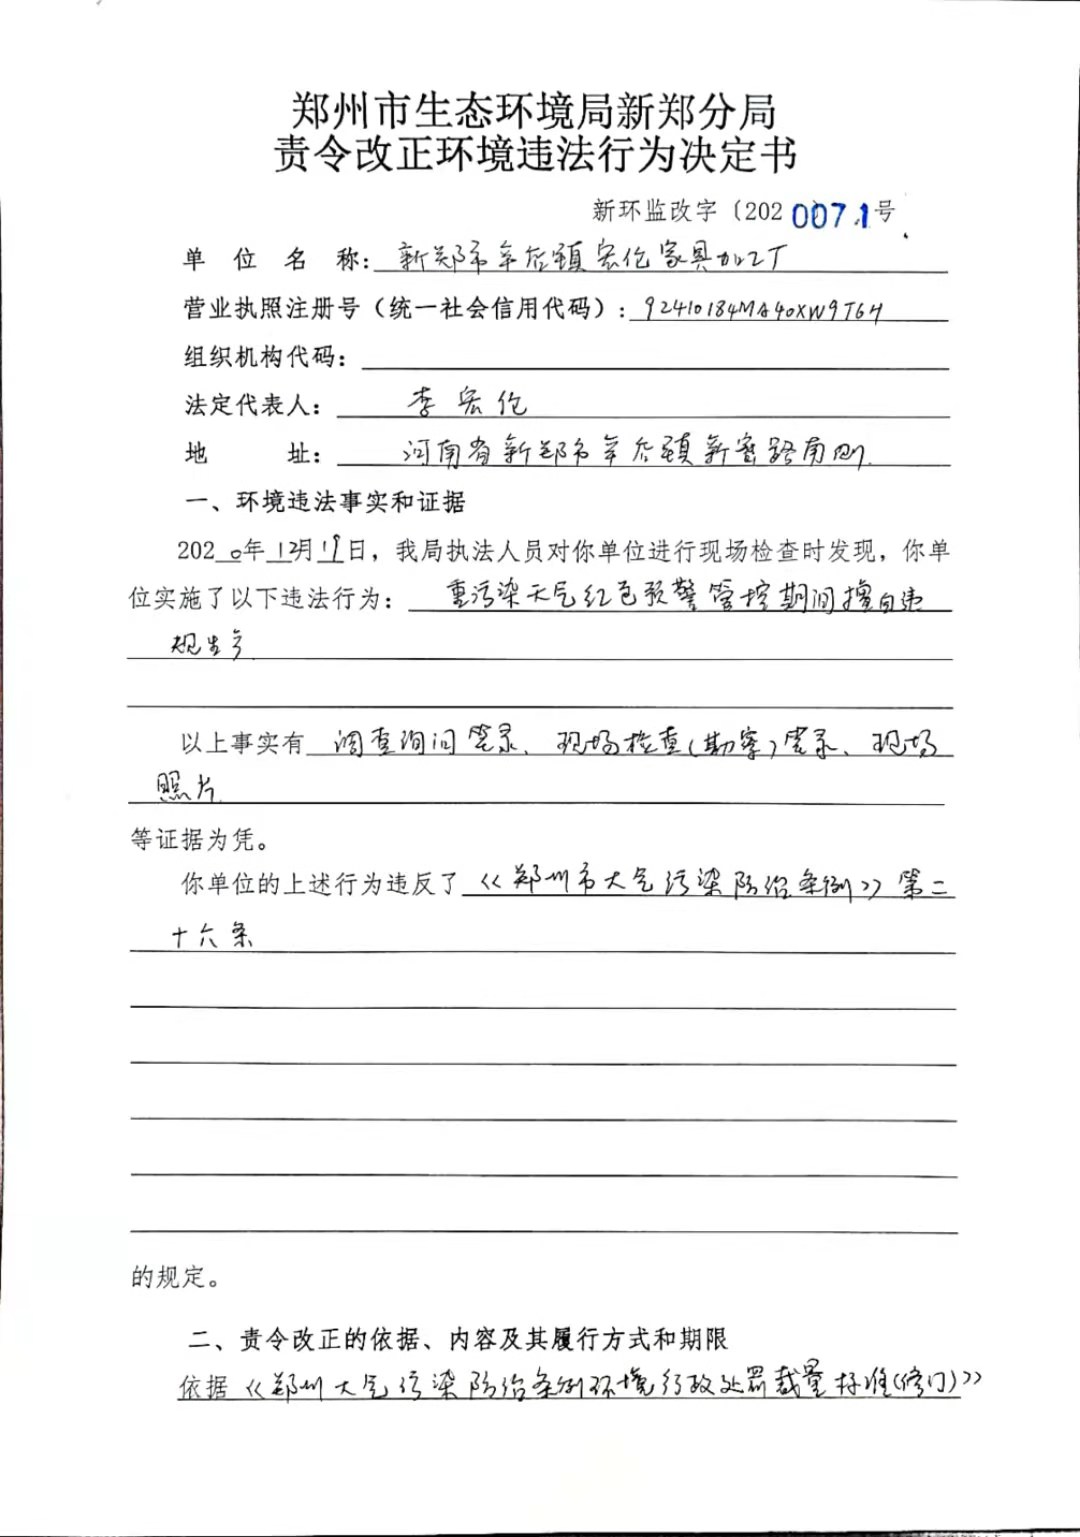 郑州市生态环境局新郑分局
责令改正环境违法行为决定书
新环监改字〔202 0071号
单 位 名 称：新郑市辛店镇宏伦家具加工厂
营业执照注册号（统一社会信用代码）：92410184MA40XW9T6H
组织机构代码：
法定代表人：李宏伦
地 址：河南省新郑市辛店镇新密路南侧
一、环境违法事实和证据
2020年12月19日，我局执法人员对你单位进行现场检查时发现，你单
位实施了以下违法行为：重污染天气红色预警管控期间擅自违
规生产
以上事实有 调查询问笔录、现场检查(勘察)笔录、现场
照片
等证据为凭。
你单位的上述行为违反了《郑州市大气污染防治条例》第二
十六条
的规定。
二、责令改正的依据、内容及其履行方式和期限
依据《郑州大气污染防治条例环境行政处罚裁量标准(修订)》